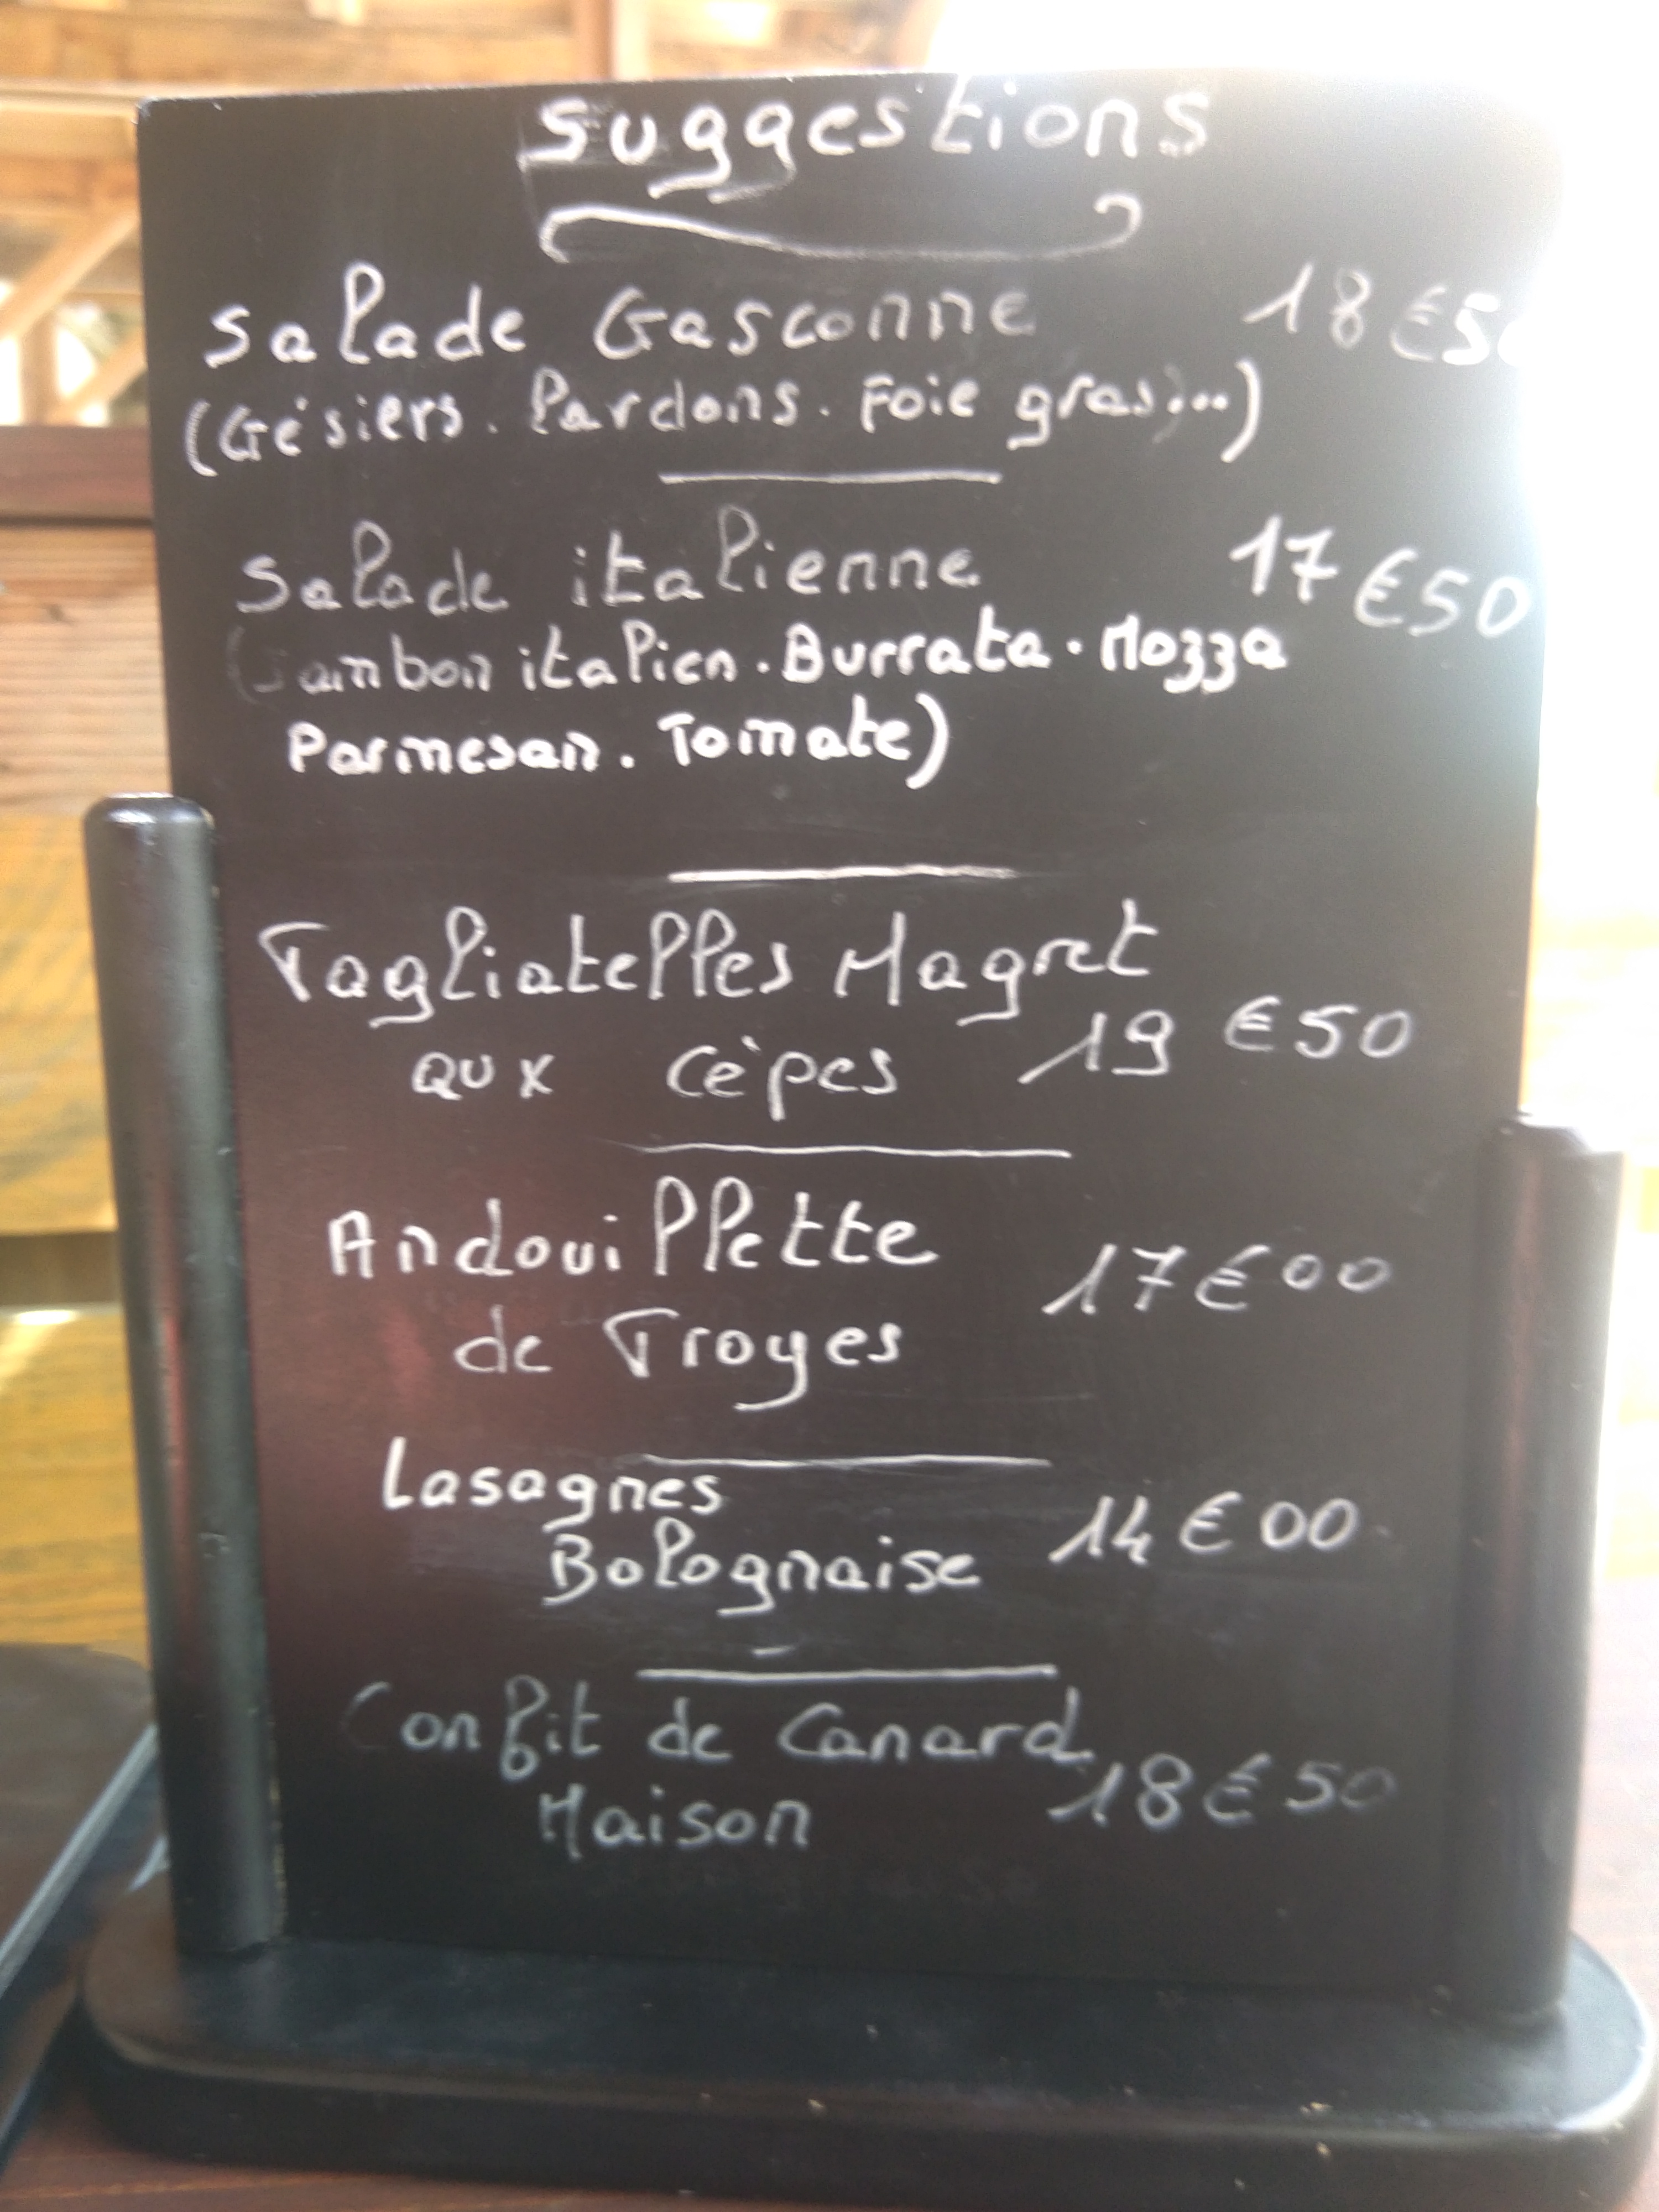 Suggestions
Salade Gasconne 18€50
(Gésiers. Lardons. Foie gras,...)
Salade italienne 17€50
(Jambon italien. Burrata. Mozza
Parmesan. Tomate)
Tagliatelles Magret
aux cèpes 19€50
Andouillette 17€00
de Troyes
Lasagnes 14€00
Bolognaise
Confit de Canard 18€50
Maison